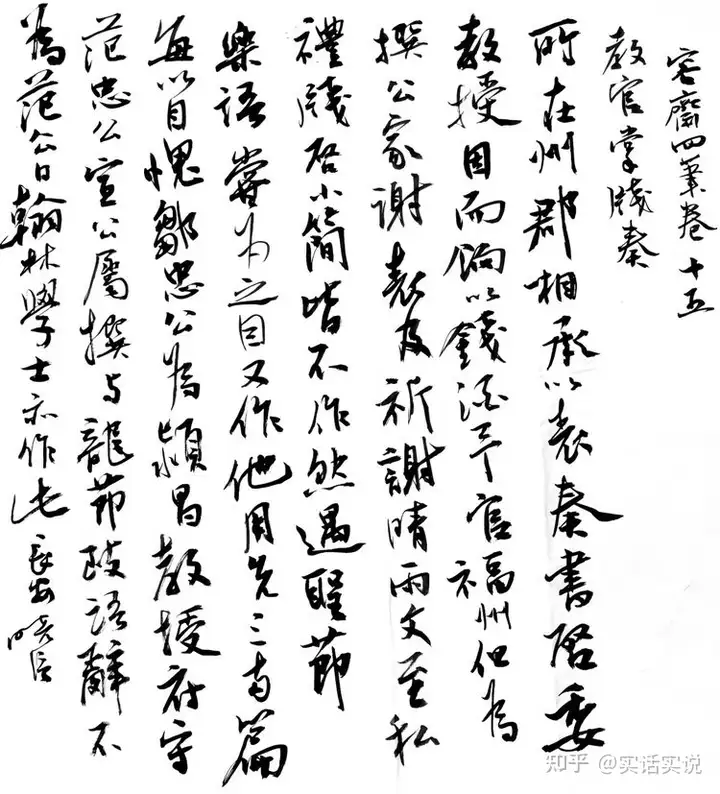 容齋四筆卷十五
教官掌牋奏
所在州郡相承以表奏書啓委
教授因而餉以錢酒予官福州但為
撰公家謝表及祈謝晴雨文至私
禮牋啓小簡皆不作然遇聖節
樂語嘗為之因又作他用者三兩篇
每以自愧鄒忠公為潁昌教授府守
范忠公宣公屬撰与龍節致語辭不
為范公曰翰林學士亦作此長安
知乎 @实话实说